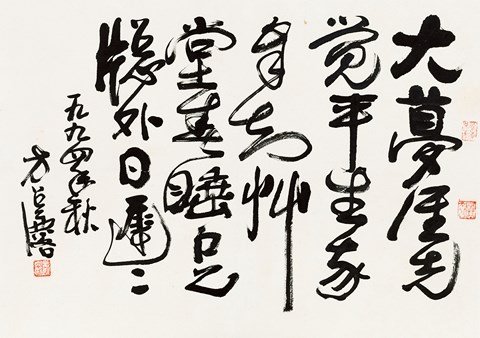 大夢誰先
覺平生我
自知艸
堂春睡足
牕外日遲〻
一九九四年秋
方召麐